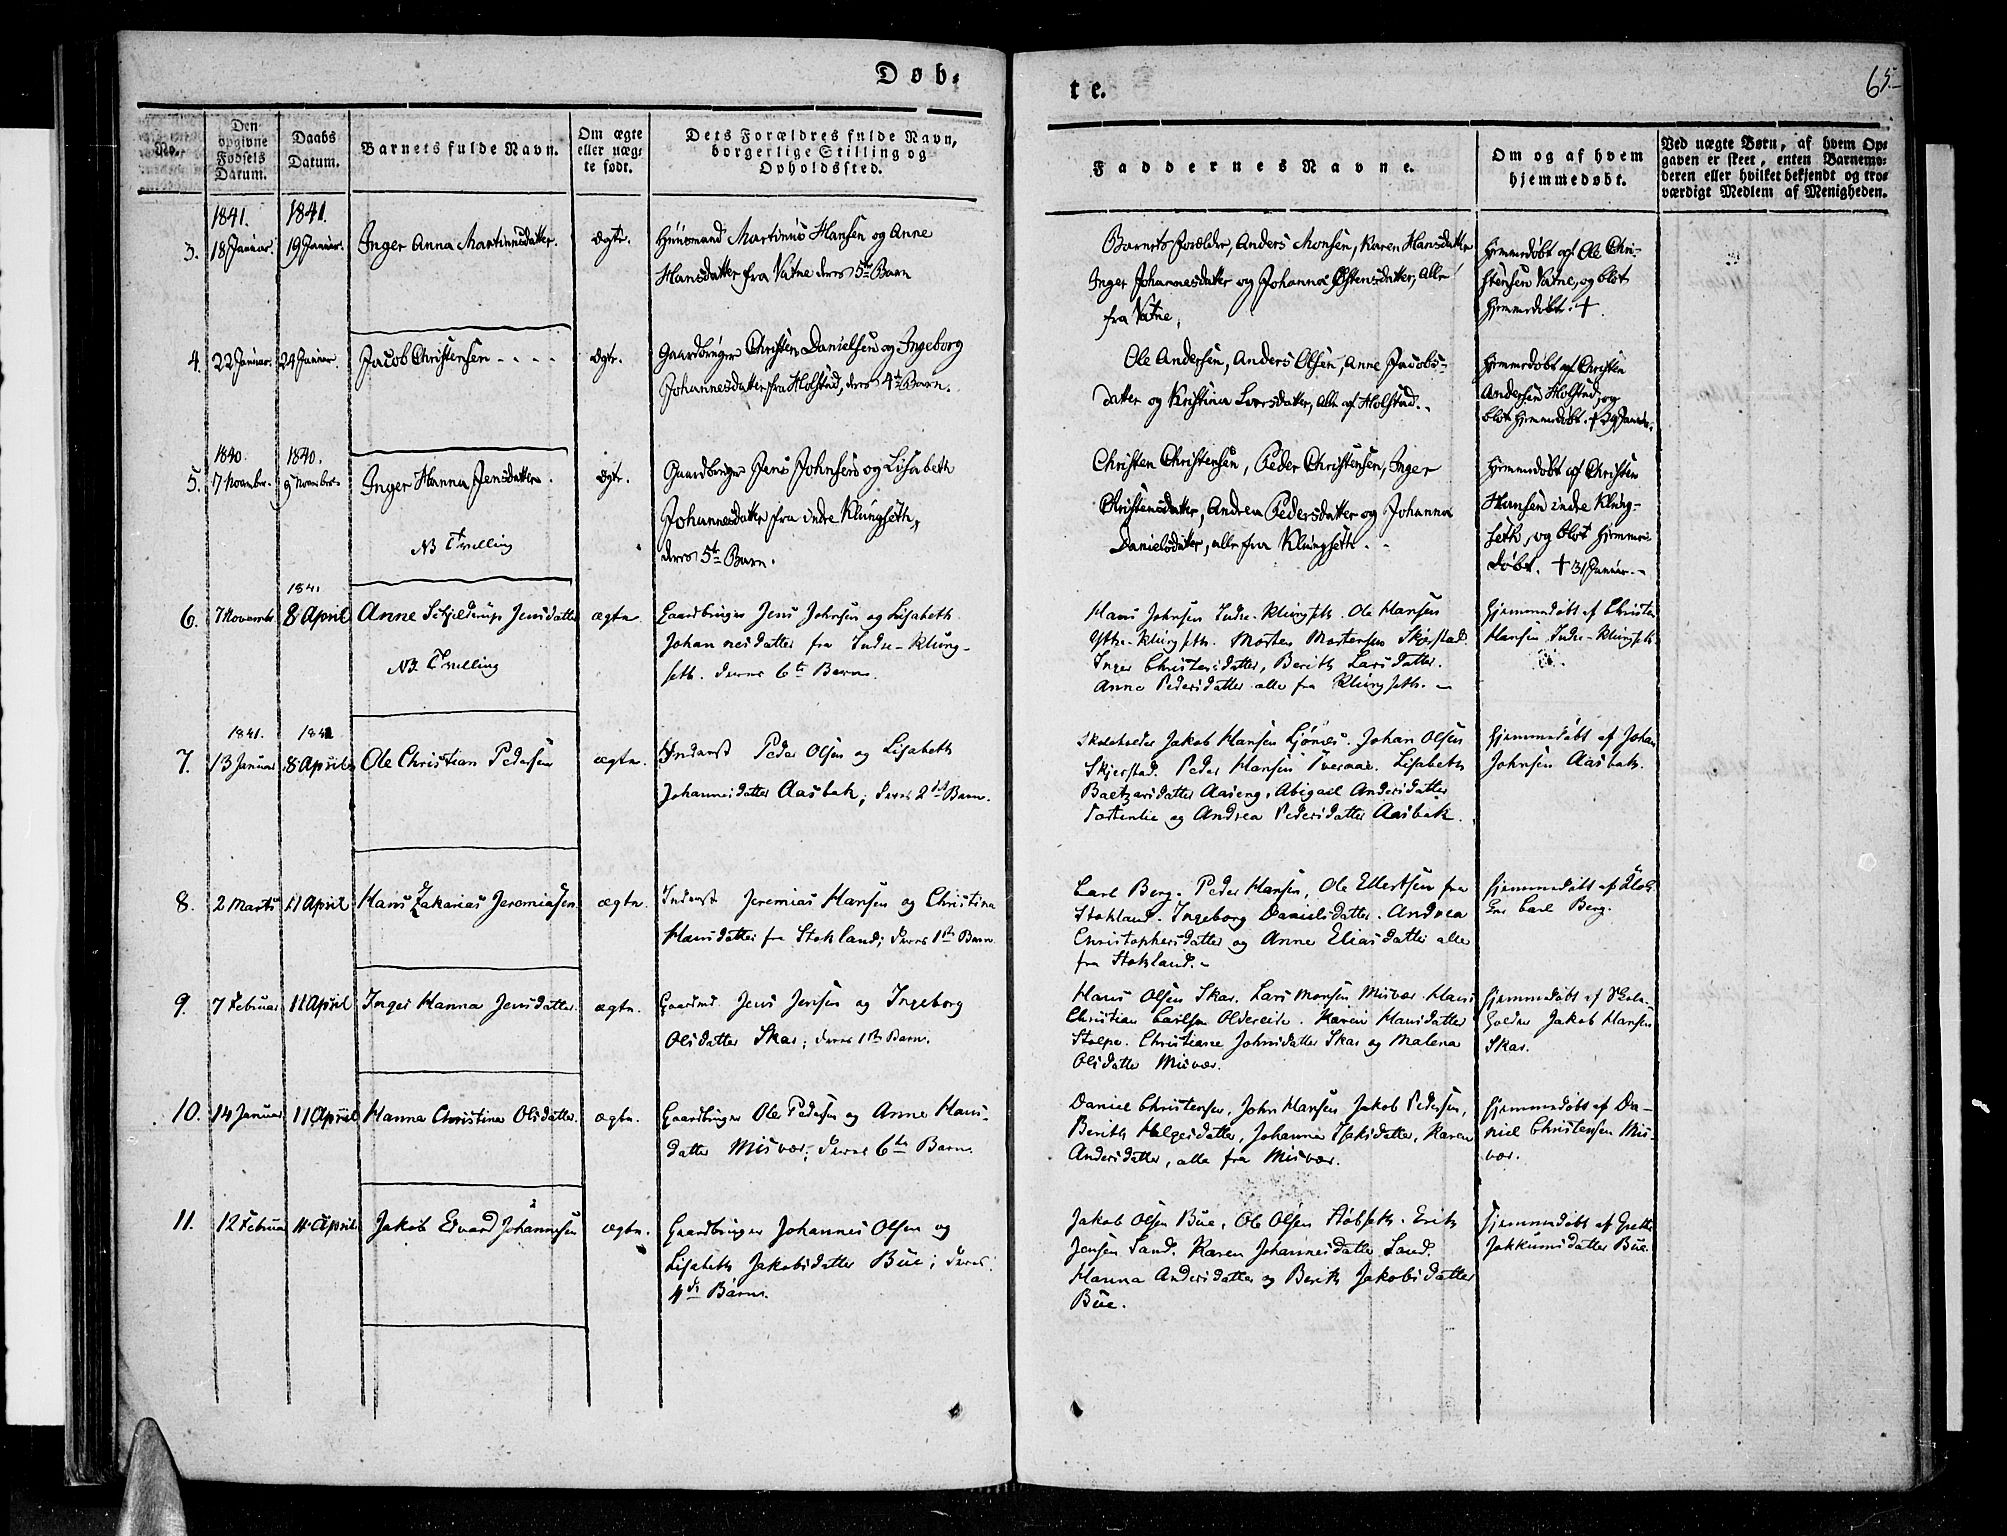 Døb-
te.
65.
No.
Den opgivne Fødsels Datum.
Daabs Datum.
Barnets fulde Navn.
Om ægte eller uægte født.
Dets Forældres fulde Navn, borgerlige Stilling og Opholdssted.
Faddernes Navne.
Om og af hvem hjemmedøbt.
Ved uægte Børn, af hvem Opgaven er skeet, enten Barnemoderen eller hvilket bekjendt og troværdigt Medlem af Menigheden.
1841. 1841.
3. 18 Januar. 19 Januar. Inger Anna Martinusdatter. Ægte.
Huusmand Martinus Hansen og Anne
Hansdatter fra Vatne deres 5te Barn
Barnets forælder, Anders Monsen, Karen Hansdatter
Inger Johannesdatter og Johanna Østensdatter, alle
fra Vatne,
Hjemmedøbt af Ole Chri-
stensen Vatne, og blot
Hjemmedøbt. +.
4. 22 Januar. 24 Januar. Jacob Christensen - - - - Ægte.
Gaardbruger Christen Danielsen og Ingeborg
Johannesdatter fra Holstad, deres 4de Barn.
Ole Andersen, Anders Olsen, Anne Jacobs-
datter og Kristina Larsdatter, alle af Holstad.
Hjemmedøbt af Christen
Andersen Holstad, og
blot Hjemmedøbt. + 29 Januar.
1840. 1840.
5. 7 Novembr. 9 Novembr. Inger Hanna Jensdatter. Ægte.
NB Tvilling
Gaardbruger Jens Johnsen og Lisabeth
Johannesdatter fra indre Klungseth,
deres 5te Barn.
Christen Christensen, Peder Christensen, Inger
Christensdatter, Andrea Pedersdatter og Johanna
Danielsdatter, alle fra Klungseth.
Hjemmedøbt af Christen
Hansen indre Klung-
seth, og blot Hjemme-
døbt. + 31 Januar.
1841
6. 7 Novembr 8 April Anne Schjelderup Jensdatter ægte
NB Tvilling
Gaardbruger Jens Johnsen og Lisabeth
Johannesdatter fra Indre-Klung-
seth. Deres 6te Barn.
Hans Johnsen Indre-Klungseth. Ole Hansen
Ytre-Klungseth. Morten Mortensen Skjerstad.
Inger Christensdatter, Berith Larsdatter.
Anne Pedersdatter alle fra Klungseth.
Hjemmedøbt af Christen
Hansen Indre-Klungseth
1841. 1841
7. 13 Januar 8 April Ole Christian Pedersen ægte
Inderst Peder Olsen og Lisabeth
Johannesdatter Aasbak; deres 2det Barn.
Skoleholder Jakob Hansen Ljønes. Johan Olsen
Skjerstad. Peder Hansen Tveraae. Lisabeth
Baltzarsdatter Aaseng. Abigael Andersdatter
og Andrea Pedersdatter Aasbak.
Hjemmedøbt af Johan
Johnsen Aasbak.
8. 2 Marts 11 April Hans Zakarias Jeremiasen ægte.
Inderst Jeremias Hansen og Christina
Hansdatter fra Stokland; deres 1ste Barn
Carl Berg. Peder Hansen, Ole Ellertsen fra
Stokland. Ingeborg Danielsdatter. Andrea
Christophersdatter og Anne Eliasdatter alle
fra Stokland.
Hjemmedøbt af Klok-
ker Carl Berg.
9. 7 Februar 11 April Inger Hanna Jensdatter. ægte.
Gaardmd. Jens Jensen og Ingeborg
Olsdatter Skar; deres 1ste Barn.
Hans Olsen Skar. Lars Monsen Misvær. Hans
Christian Carlsen Oldereide. Karen Hansdatter
Stolpe. Christiane Johnsdatter Skar og Malena
Olsdatter Misvær.
Hjemmedøbt af Skole-
holder Jakob Hansen
Skar.
10. 14 Januar 11 April Hanna Christina Olsdatter. ægte.
Gaardbruger Ole Pedersen og Anne Hans-
datter Misvær; deres 6te Barn.
Daniel Christensen, John Hansen Jakob Pedersen,
Berith Helgesdatter, Johanna Isaksdatter, Karen
Andersdatter, alle fra Misvær.
Hjemmedøbt af Da-
niel Christensen Mis-
vær.
11. 12 Februar 11 April Jakob Edvard Johannesen ægte.
Gaardbruger Johannes Olsen og
Lisabeth Jakobsdatter Bue; deres
4de Barn.
Jakob Olsen Bue, Ole Olsen Støbseth. Erik
Jensen Sand. Karen Johannesdatter Sand.
Hanna Andersdatter og Berith Jakobsdatter
Bue.
Hjemmedøbt af Grethe
Jokkumsdatter Bue.